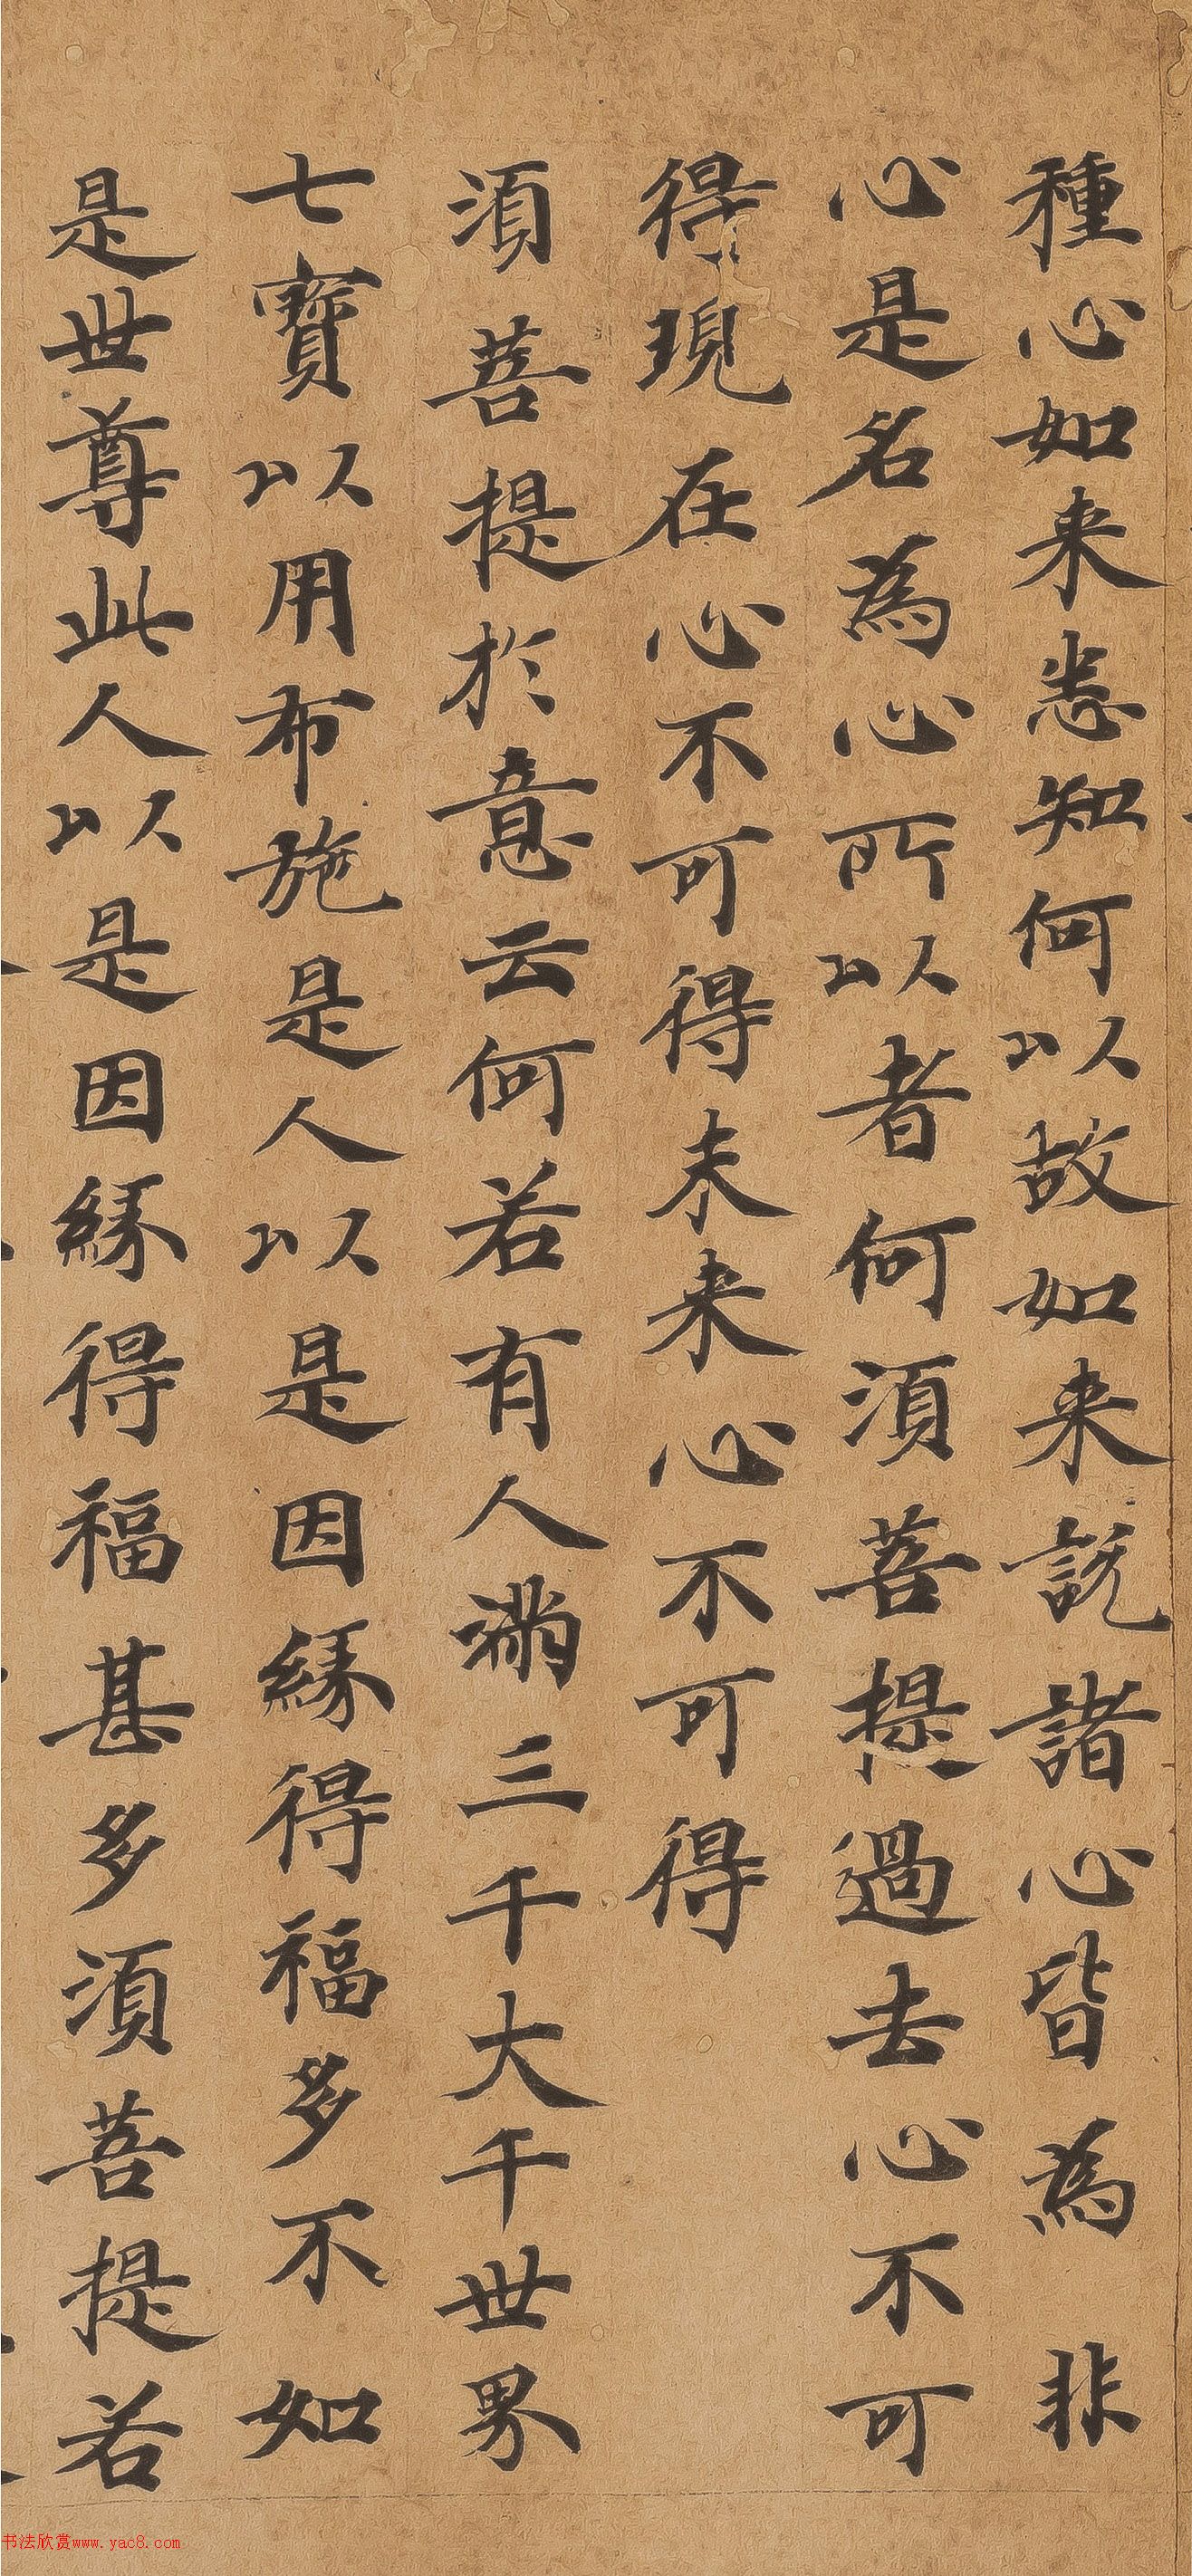 種心如来悉知何以故如来説諸心皆為非
心是名為心所以者何湏菩提過去心不可
得現在心不可得未来心不可得
湏菩提於意云何若有人滿三千大千世界
七寶以用布施是人以是因緣得福多不如
是世尊此人以是因緣得福甚多湏菩提若
书法欣赏www.yac8.com